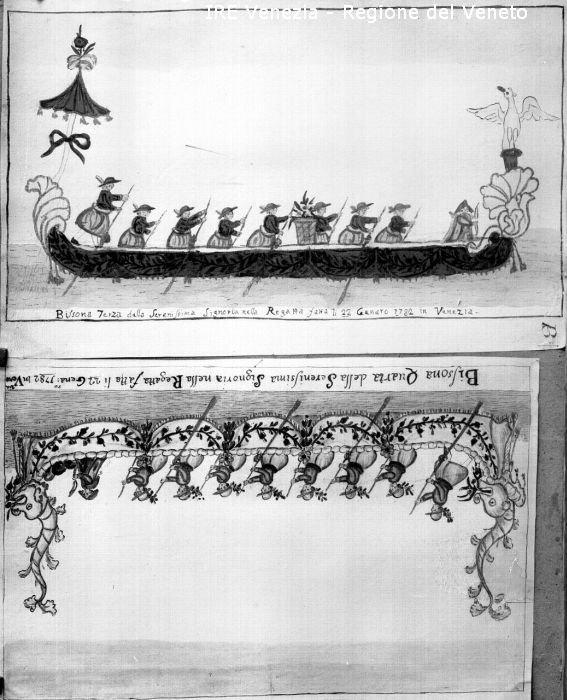 IRE Venezia - Regione del Veneto
Bissona Terza della Serenissima Signoria nella Regatta fatta li 22 Genaro 1782 in Venezia.
B
Bissona Quarta della Serenissima Signoria nella Regatta fatta li 22 Gena.º 1782 in Ven